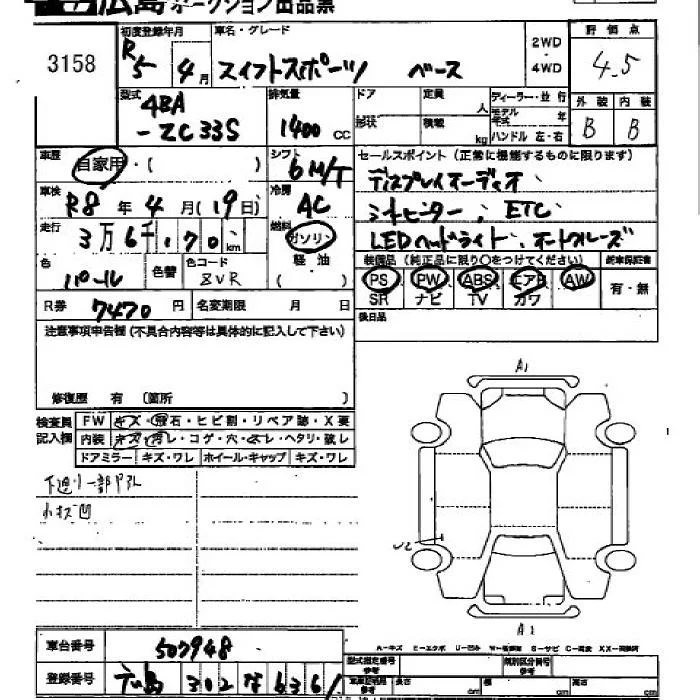 広島オークション出品票
3158
初度登録年月 車名・グレード 2WD 4WD 評価点
R5 4月 スイフトスポーツ ベース 4.5
型式 4BA-ZC33S
排気量 1400 cc
ドア 定員 人 ディーラー・並行
形状 積載 kg モデル年式 年
ハンドル 左・右
外装 内装
B B
車歴 自家用・( )
シフト 6M/T
セールスポイント(正常に機能するものに限ります)
ディスプレイオーディオ、
シートヒーター、ETC
LEDヘッドライト、オートクルーズ
車検 R8年4月(19日)
冷房 AC
走行 3万6千170km
燃料 ガソリン 軽油 ( )
色 パール 色替 色コード ZVR
装備品(純正品に限り○をつけてください) 新車保証書
PS PW ABS エアB AW 有・無
SR ナビ TV カワ
R券 7470円 名変期限 月 日
後日品
注意事項申告欄(不具合内容等は具体的に記入して下さい)
修復歴 有 (箇所 )
検査員記入欄
FW キズ・飛石・ヒビ割・リペア跡・X要
内装 キズ・汚レ・コゲ・穴・スレ・ヘタリ・破レ
ドアミラー キズ・ワレ ホイール・キャップ キズ・ワレ
A1
下廻り一部サビ
小キズ凹
U2
A1
A-キズ E-エクボ U-凹み W-板金跡 S-サビ C-腐食 XX-交換済
車台番号 507948
型式指定番号 参考 類別区分番号 参考
登録番号 広島 302 な 6361
長さ cm 幅 cm 高さ cm